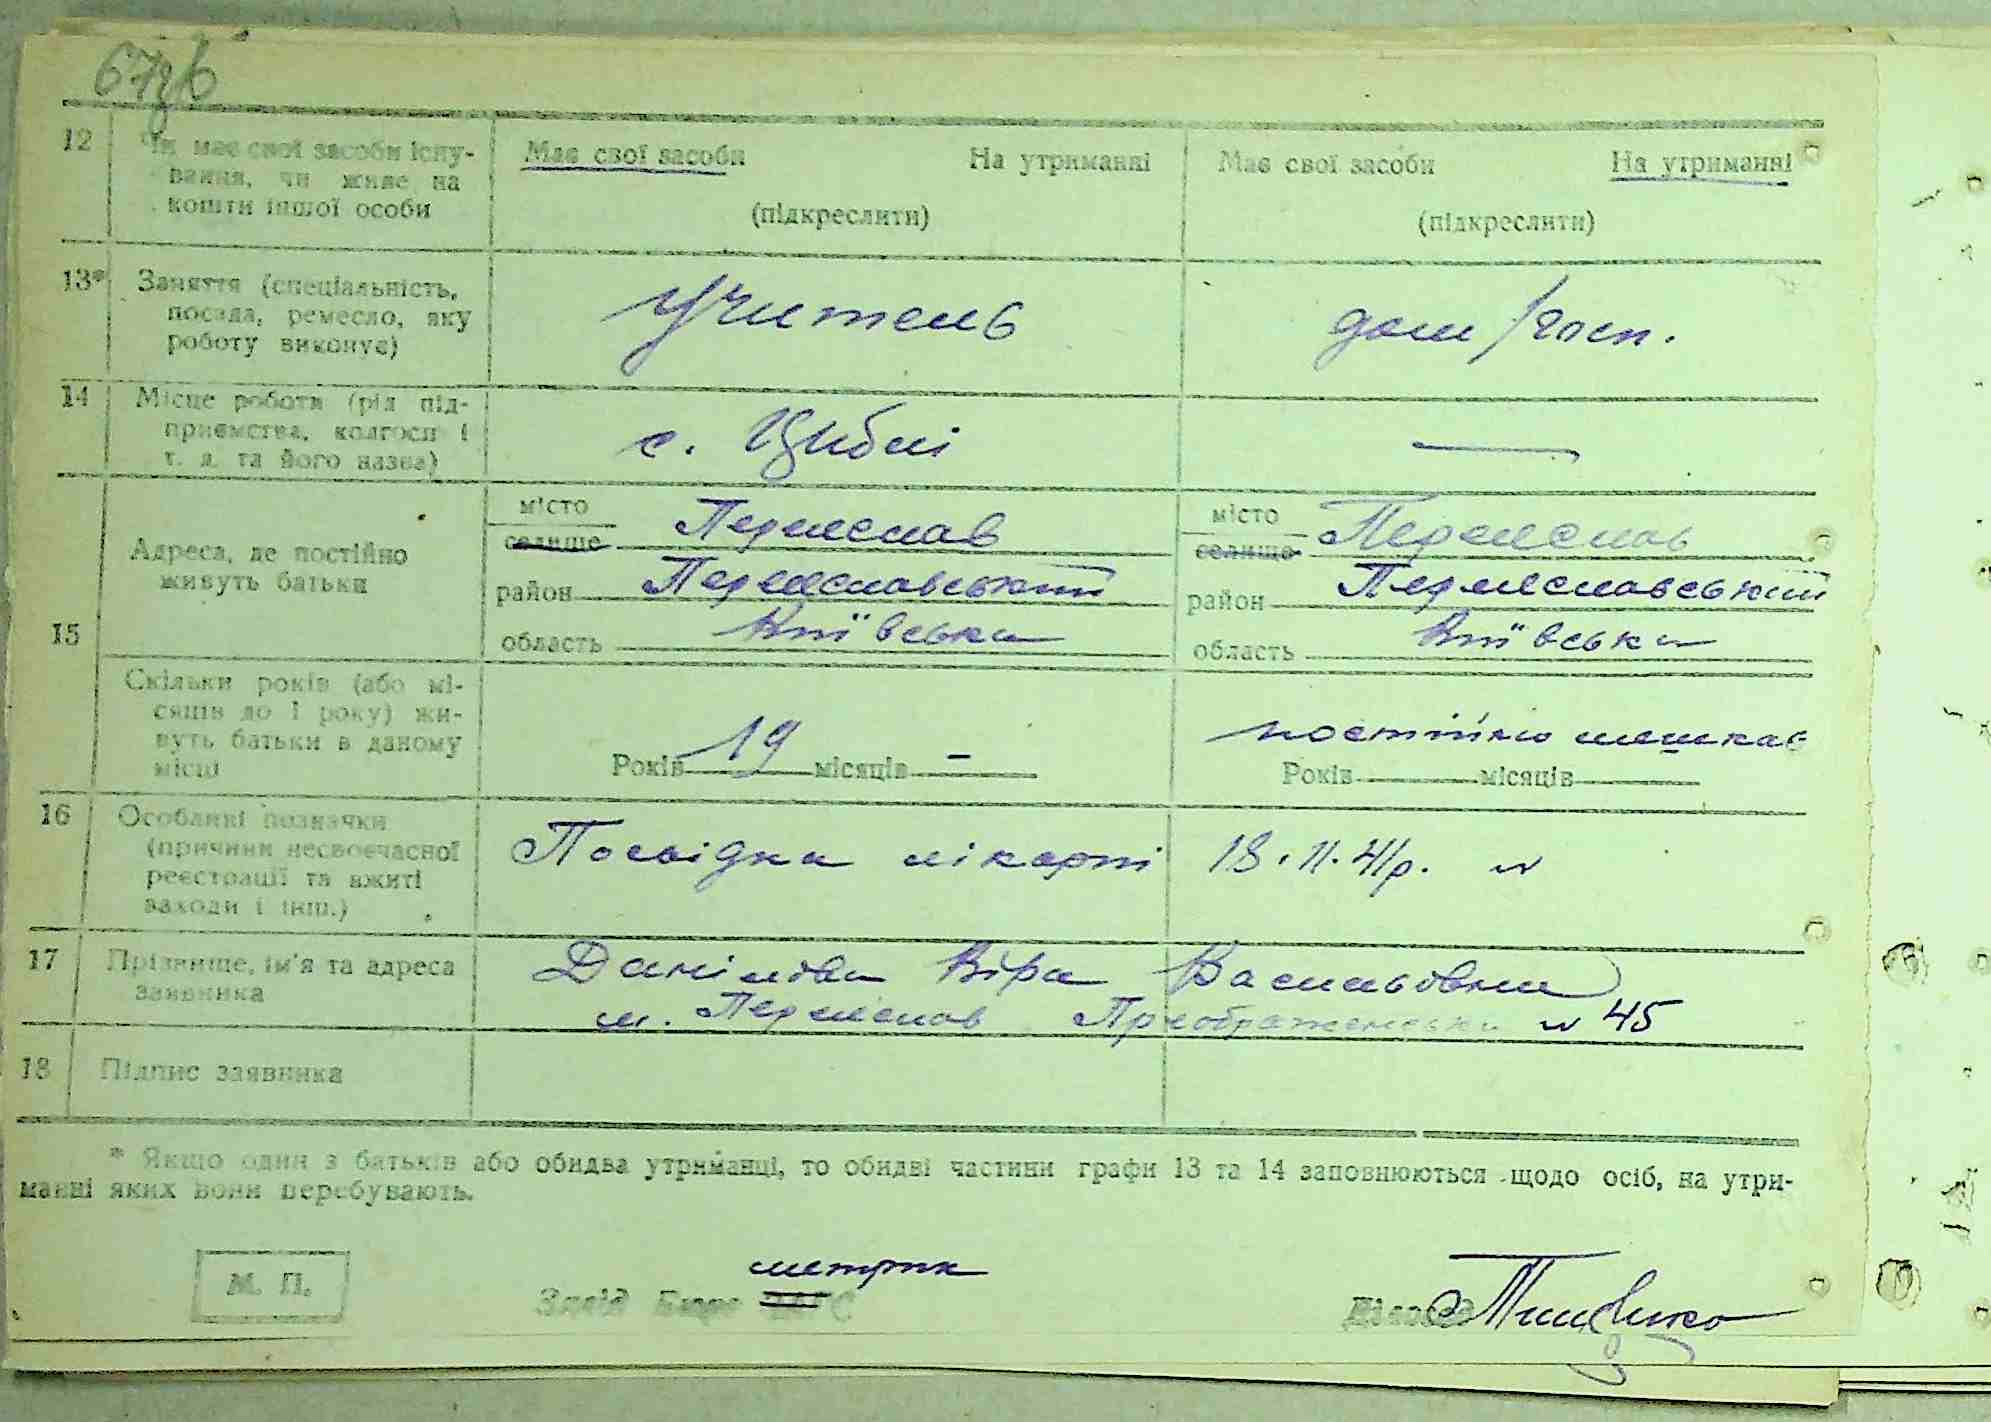 67зв
12 Чи має свої засоби існу-
вання, чи живе на
кошти іншої особи
Має свої засоби На утриманні
(підкреслити)
Має свої засоби На утриманні
(підкреслити)
13* Заняття (спеціальність,
посада, ремесло, яку
роботу виконує)
Учитель
дом/госп.
14 Місце роботи (рід під-
приємства, колгосп і
т. д. та його назва)
с. Циблі
—
15
Адреса, де постійно
живуть батьки
місто
селище Переяслав
район Переяславський
область Київська
місто
селище Переяслав
район Переяславський
область Київська
Скільки років (або мі-
сяців до 1 року) жи-
вуть батьки в даному
місці
Років 19 місяців –
постійно мешкає
Років місяців
16 Особливі позначки
(причини несвоєчасної
реєстрації та вжиті
заходи і інш.)
Посвідка лікарні 18.11.41р. №
17 Прізвище, ім'я та адреса
заявника
Данілова Віра Васильовна
м. Переяслав Преображенська № 45
18 Підпис заявника
* Якщо один з батьків або обидва утриманці, то обидві частини графи 13 та 14 заповнюються щодо осіб, на утри-
манні яких вони перебувають.
М. П.
метрик
Завід Бюро ЗАГС
Діловод